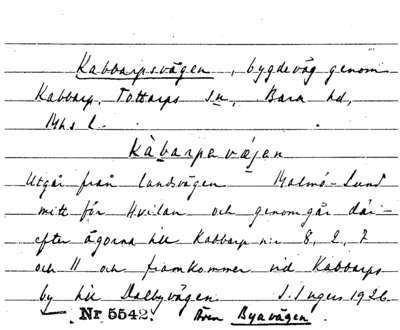 Kabbarpsvägen, bygdeväg genom
Kabbarp, Tottarps sn, Bara hd,
Mhs l.
Kàbarpavä́jen
Utgår från landsvägen Malmö-Lund
mitt för Hvilan och genomgår där-
efter ägorna till Kabbarp n:r 8, 2, 7
och 11 och framkommer vid Kabbarps
by till Dalbyvägen. S. Ingers 1926.
Nr 5542. Även Byavägen.